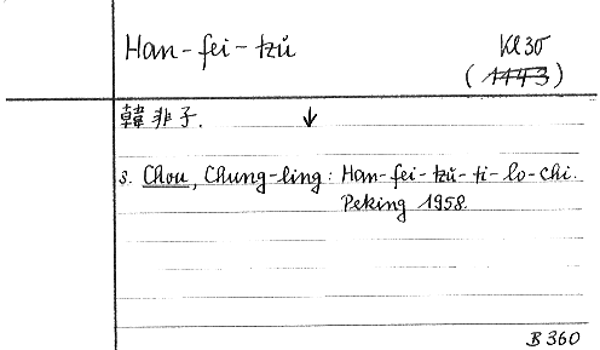 Han-fei-tzŭ
Kl 30
(1143)
韓非子. ↓
s. Chou, Chung-ling: Han-fei-tzŭ-ti-lo-chi.
Peking 1958.
B 360